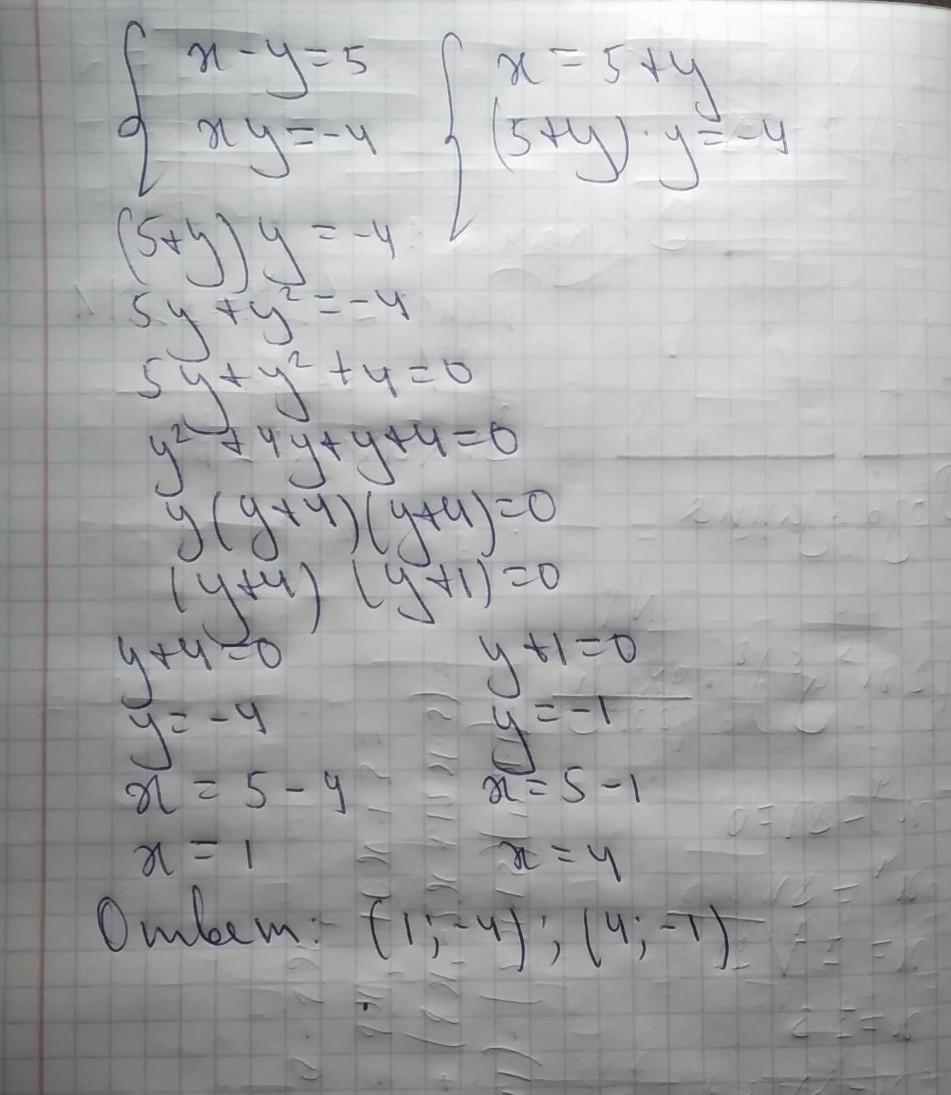 x - y = 5
xy = -4
x = 5 + y
(5+y) · y = -4
(5+y) y = -4
5y + y² = -4
5y + y² + 4 = 0
y² + 4y + y + 4 = 0
y(y+4)(y+4) = 0
(y+4) (y+1) = 0
y+4=0
y = -4
x = 5 - 4
x = 1
y+1=0
y = -1
x = 5 - 1
x = 4
Ответ: (1; -4); (4; -1)